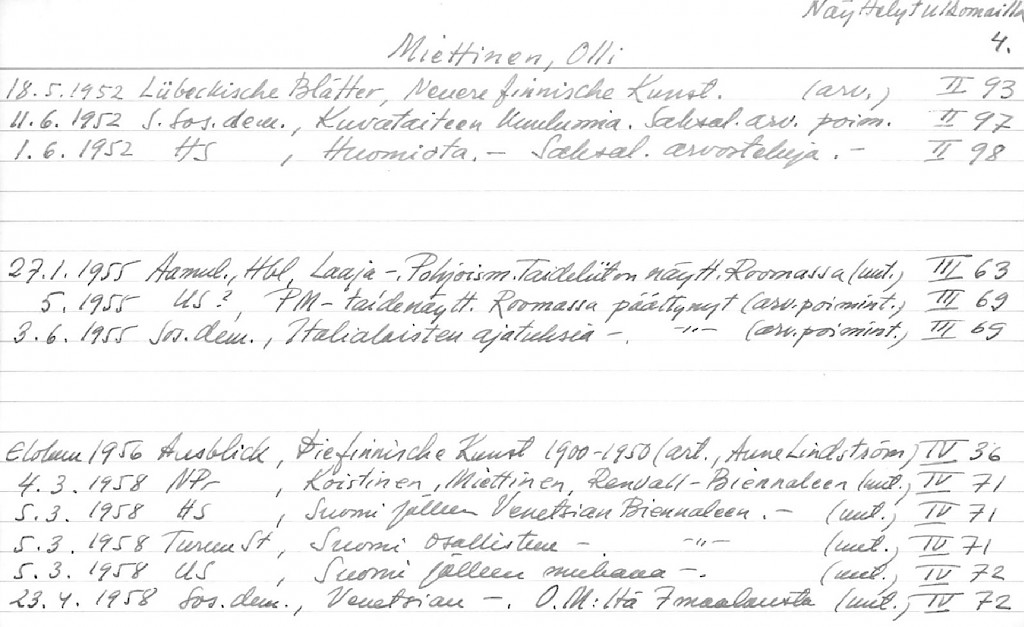 Näyttelyt ulkomailla
4.
Miettinen, Olli
18.5.1952 Lübeckische Blätter, Neuere finnische Kunst. (arv.) II 93
11.6.1952 S.Sos.dem., Kuvataiteen kuuluvia. Saksal. arv. poim. II 97
1.6.1952 HS , Huomiota. - Saksal. arvosteluja. - II 98
27.1.1955 Aamul., Hbl, Laaja -. Pohjoism. Taideliiton näytt. Roomassa (uut.) III 63
5.1955 US ? PM - taidenäytt. Roomassa päättynyt (arv.poimint.) III 69
3.6.1955 Sos.dem., Italialaisten ajatuksia -. -"- (arv.poimint.) III 69
Elokuu 1956 Ausblick, Die finnische Kunst 1900-1950 (art., Aune Lindström) IV 36
4.3.1958 NPr , Koistinen, Miettinen, Renvall - Biennaleen (uut.) IV 71
5.3.1958 HS , Suomi jälleen Venetsian Biennaleen. - (uut.) IV 71
5.3.1958 Turun St, Suomi osallistuu - -"- (uut.) IV 71
5.3.1958 US , Suomi jälleen mukana -. (uut.) IV 72
23.4.1958 Sos.dem., Venetsian -. O.M:ltä 7 maalausta (uut.) IV 72